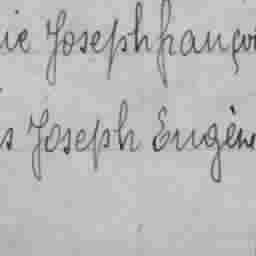 ie Joseph françoi
s Joseph Eugène